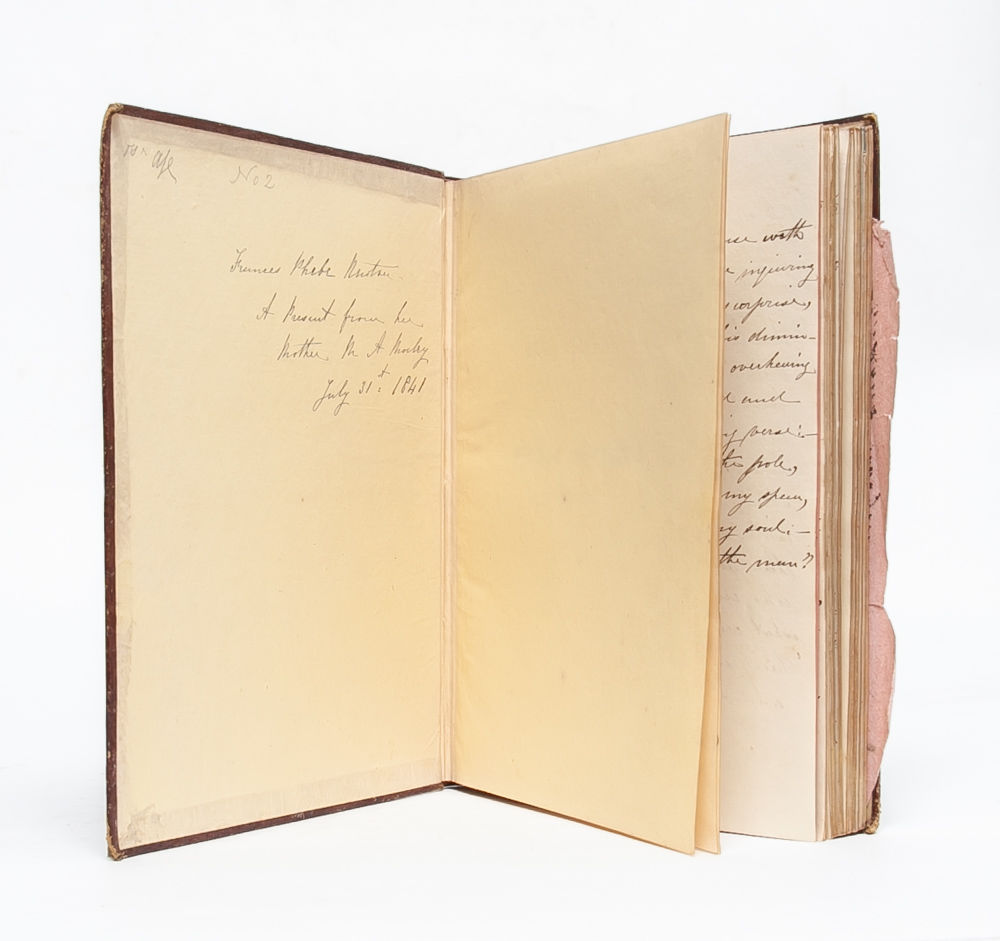 No 2
Frances Phebe
A Present from her
Mother M A
July 31st 1841
use with
injuring
surprise,
his dimin-
overhearing
and
verse:—
the pole,
my spear,
my soul:—
the man"?